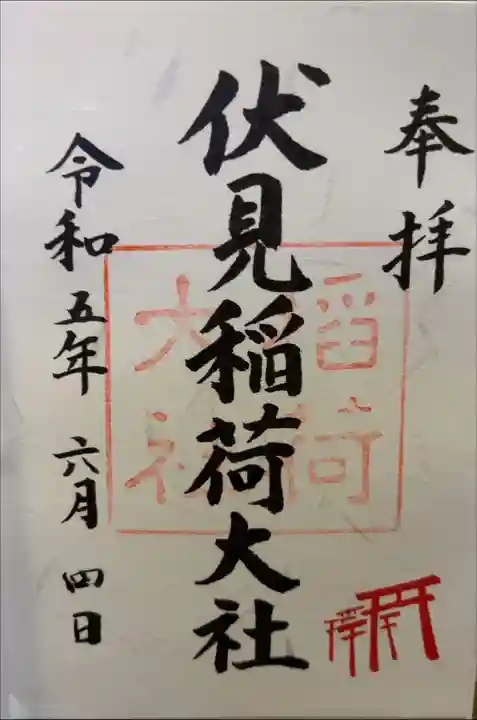 奉拝
伏見稲荷大社
稲荷
大社
令和五年六月四日